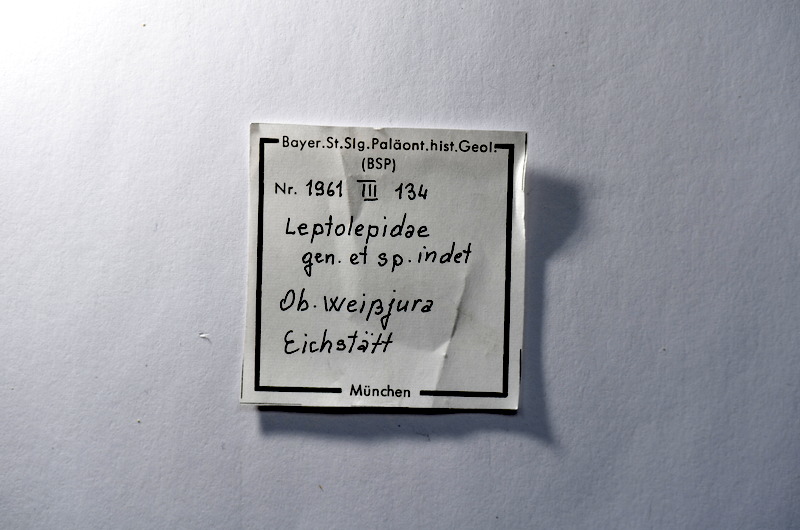 Bayer.St.Slg.Paläont.hist.Geol.
(BSP)
Nr. 1961 III 134
Leptolepidae
gen. et sp. indet
Ob. Weißjura
Eichstätt
München